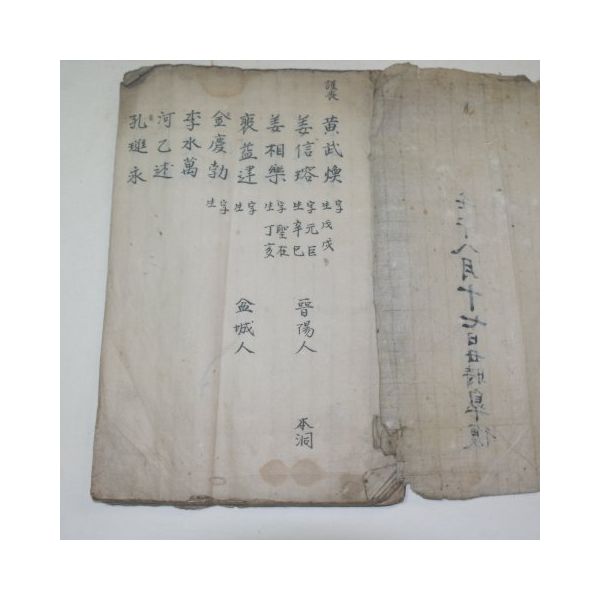 八月十七日丑時皐復
護喪 黃武煥 字 生戊戌
姜信瑢 字元巨 生辛巳 晉陽人 本洞
姜相樂 字聖在 生丁亥
裵益建 字 生 盆城人
金慶勃 字 生
李水萬
河乙述
孔璡永